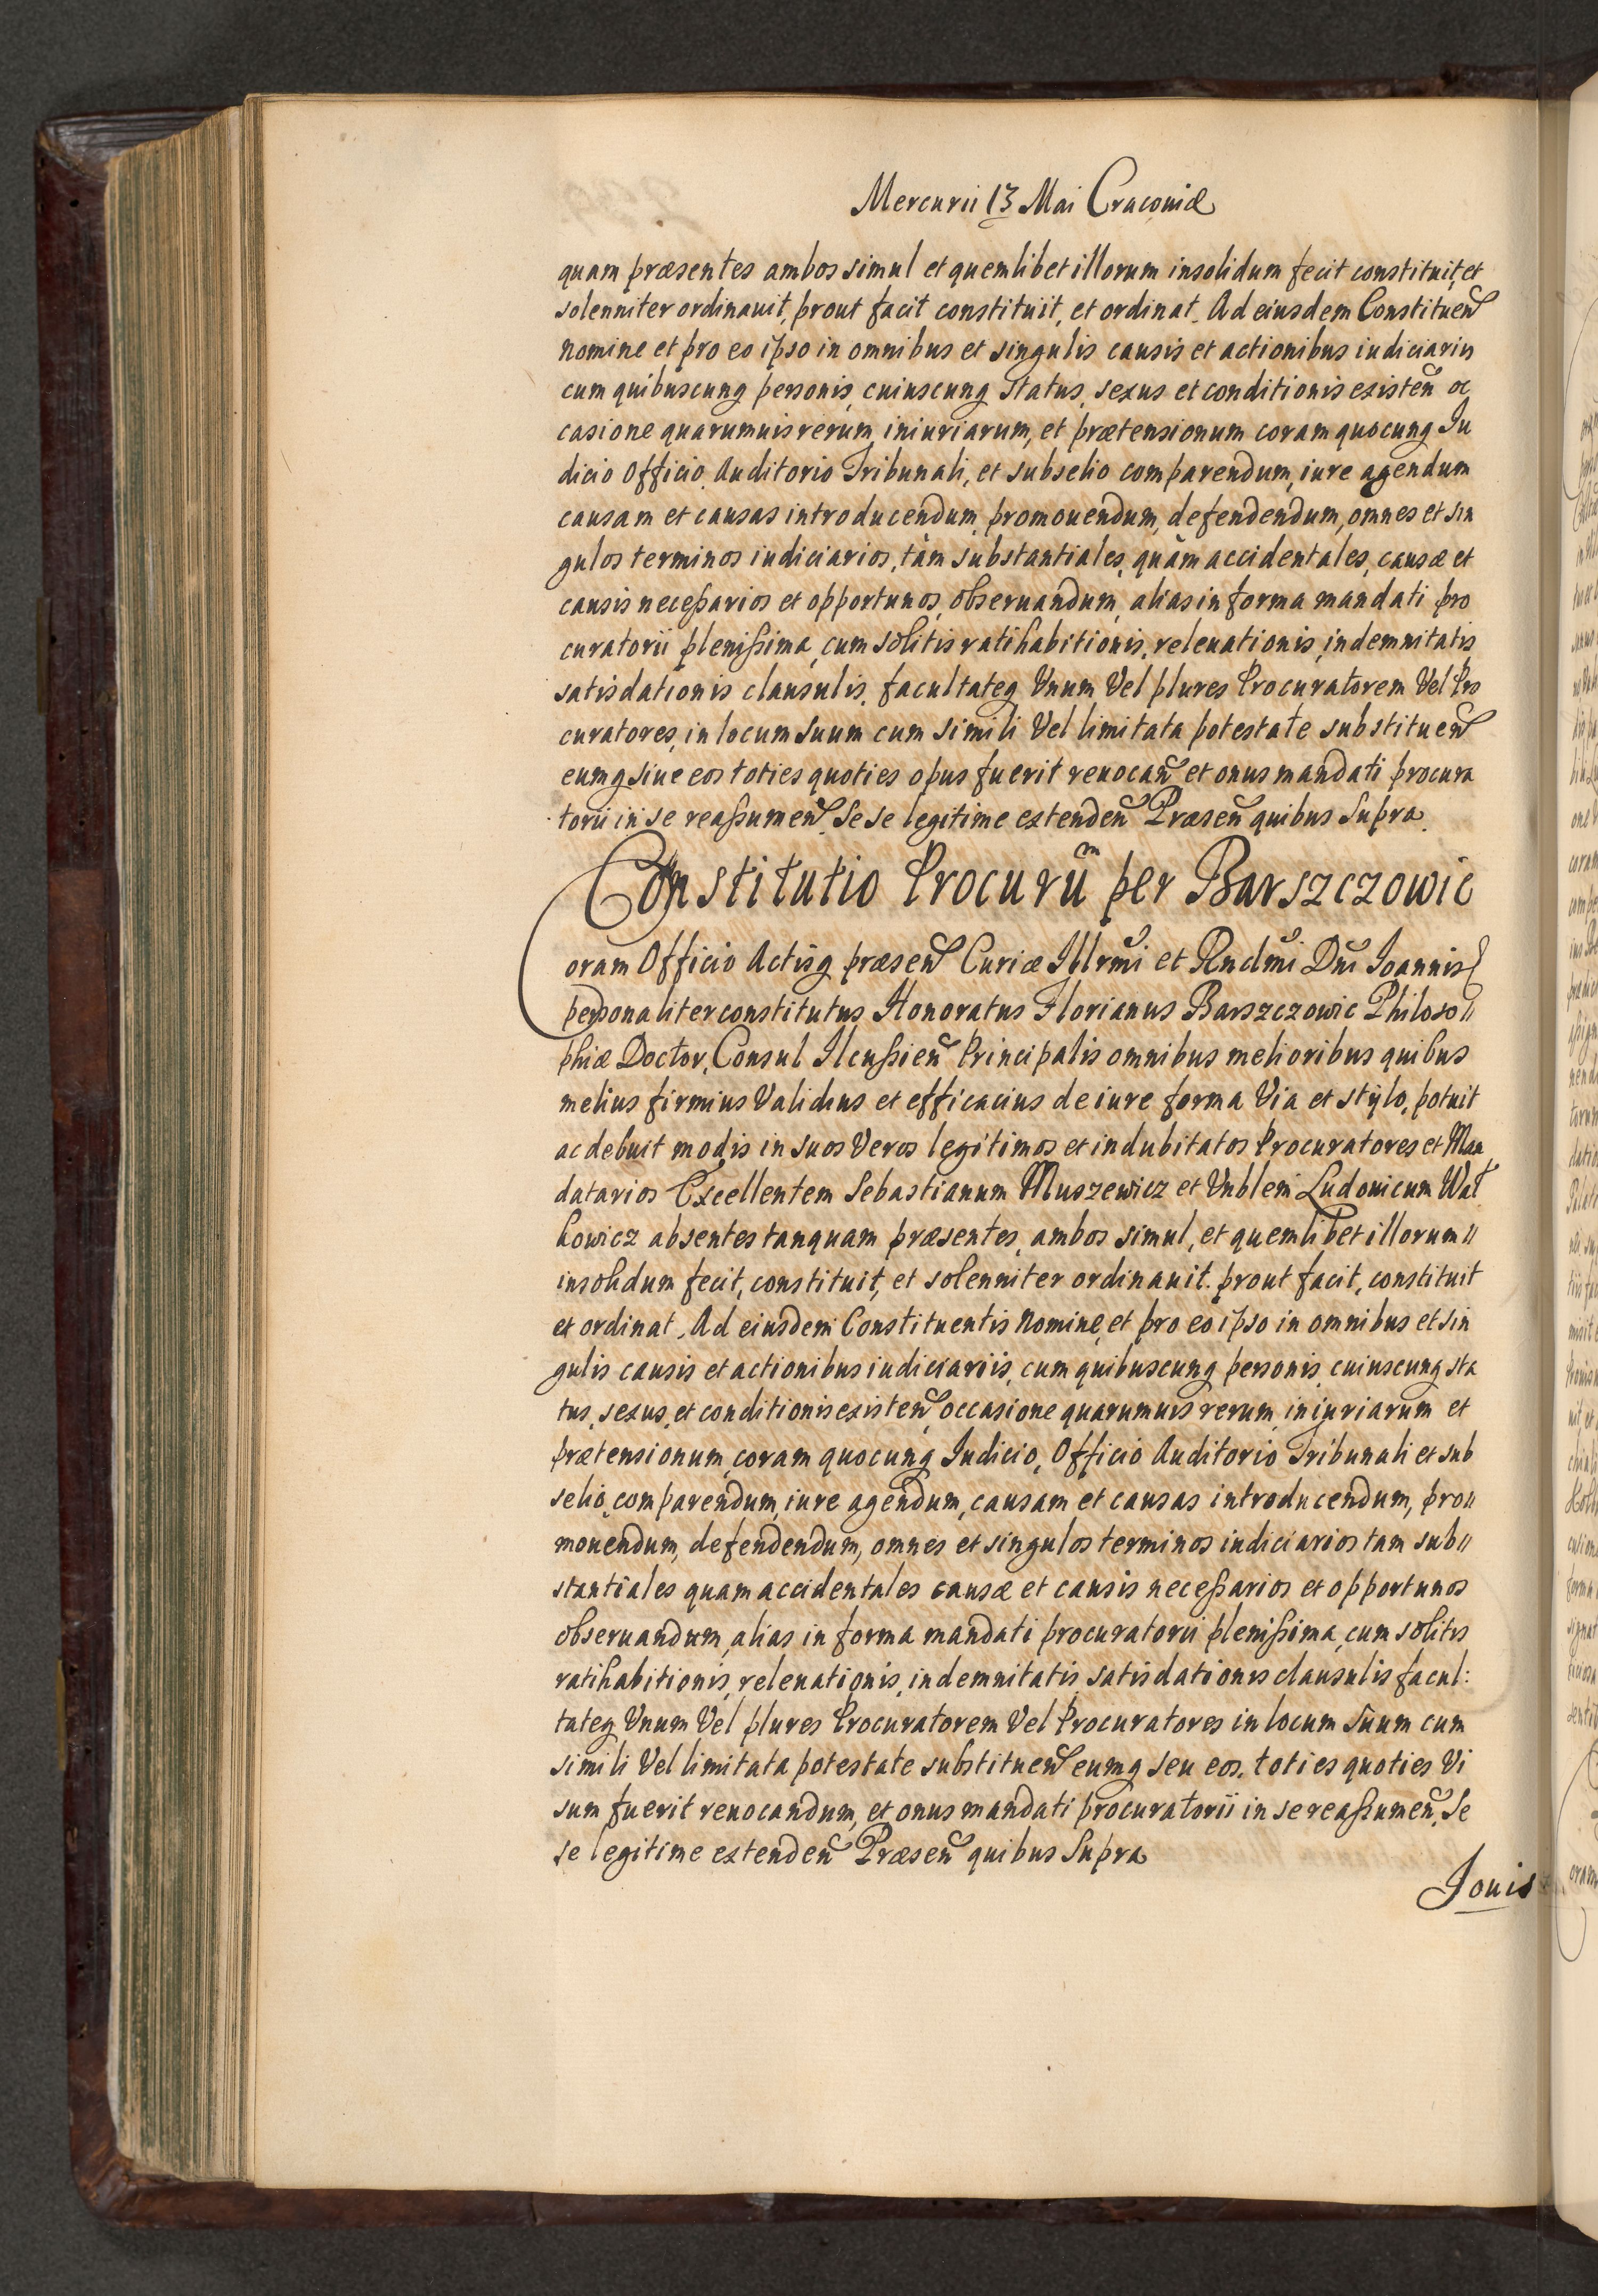 Mercurii 13 Mai Cracouiæ
quam præsentes ambos simul et quemlibet illorum insolidum fecit constituit, et
solenniter ordinauit, prout facit constituit, et ordinat. Ad eiusdem Constituen̄
nomine et pro eo ipso in omnibus et singulis causis et actionibus iudiciariis
cum quibuscunq personis, cuiuscunq status, sexus et conditionis existen̄ oc
casione quarumuis rerum, iniuriarum, et prætensionum coram quocunq Iu
dicio Officio, Auditorio Tribunali, et subselio comparendum, iure agendum
causam et causas introducendum, promouendum, defendendum, omnes et sin
gulos terminos iudiciarios, tàm substantiales, quàm accidentales, causæ et
causis neceßarios et opportunos, obseruandum, alias in forma mandati pro
curatorii plenißima, cum solitis ratihabitionis, releuationis, indemnitatis
satisdationis clausulis, facultateq Vnum Vel plures Procuratorem Vel Pro
curatores, in locum suum cum simili Vel limitata potestate substituen̄
eumq siue eos toties quoties opus fuerit reuocan̄ et onus mandati procura
torii in se reaßumen̄. Se se legitime extenden̄ Præsen̄ quibus Supra.
Constitutio Procurūm per Barszczowic
Coram Officio Actisq præsen̄ Curiæ Illrmi et Rndmi Dni Ioannis
personaliter constitutus Honoratus Florianus Barszczowic Philoso〃
phiæ Doctor, Consul Ilcußien̄ Principalis omnibus melioribus quibus
melius firmius Validius et efficacius de iure forma Via et stylo, potuit
ac debuit modis in suos Veros legitimos et indubitatos Procuratores et Man
datarios Excellentem Sebastianum Muszewicz et Vnblem Ludouicum Wat
kowicz absentes tanquam præsentes, ambos simul, et quemlibet illorum〃
insolidum fecit, constituit, et solenniter ordinauit. prout facit, constituit
et ordinat. Ad eiusdem Constituentis nomine, et pro eo ipso in omnibus et sin
gulis causis et actionibus iudiciariis, cum quibuscunq personis, cuiuscunq sta
tus, sexus, et conditionis existen̄ occasione quarumuis rerum, iniuriarum et
prætensionum, coram quocunq Iudicio, Officio Auditorio Tribunali et sub
selio, comparendum, iure agendum, causam et causas introducendum, pro〃
mouendum, defendendum, omnes et singulos terminos iudiciarios tam sub〃
stantiales quam accidentales causæ et causis neceßarios et opportunos
obseruandum, alias in forma mandati procuratorii plenißima, cum solitis
ratihabitionis, releuationis, indemnitatis satisdationis clausulis facul:
tateq Vnum Vel plures Procuratorem Vel Procuratores in locum suum cum
simili Vel limitata potestate substituen̄ eumq seu eos. toties quoties Vi
sum fuerit reuocandum, et onus mandati procuratorii in se reaßumen̄. Se
se legitime extenden̄ Præsen̄ quibus Supra
Iouis